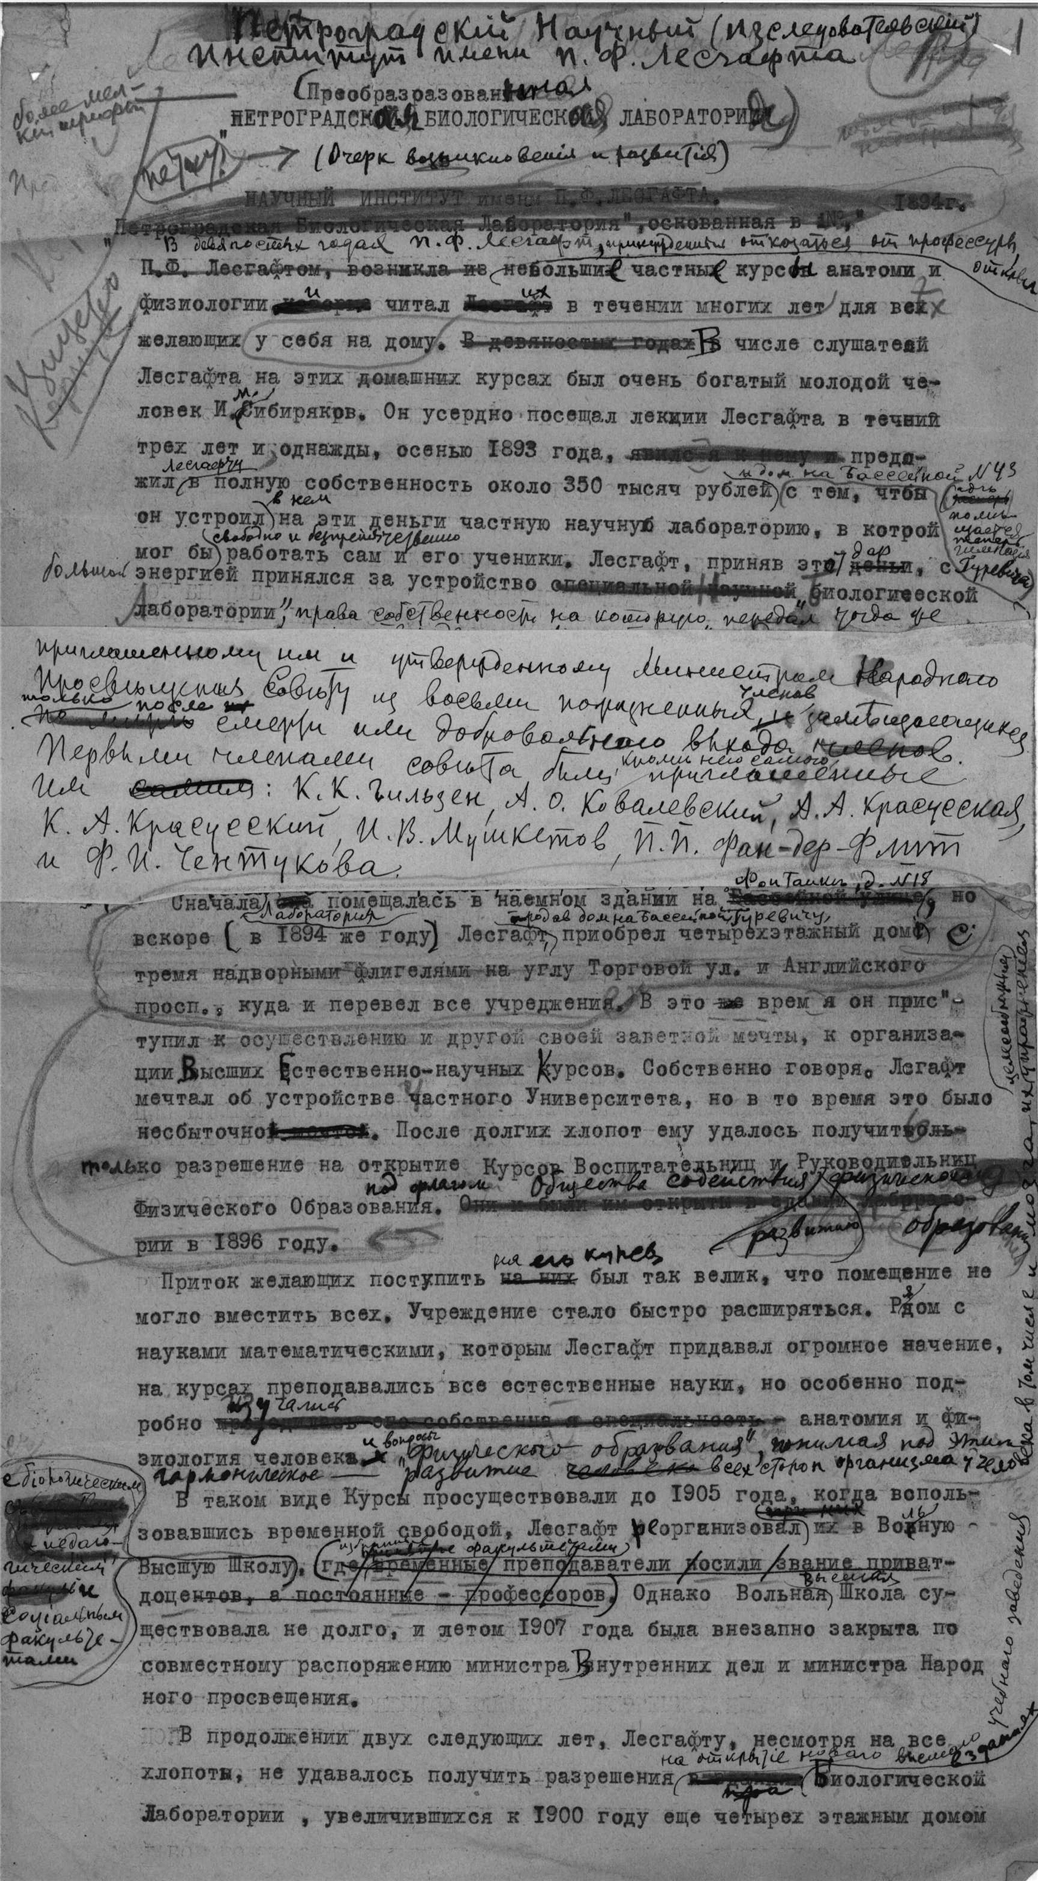 Петроградскій Научный (изследовательскій)
Институт имени П. Ф. Лесгафта
1
более мел-
кий шрифт
(Преобразованная
ПЕТРОГРАДСКАЯ БИОЛОГИЧЕСКАЯ ЛАБОРАТОРИЯ)
петит!
(Очерк возникновенія и развитія)
НАУЧНЫЙ ИНСТИТУТ имени П.Ф.ЛЕСГАФТА.
1894г.
"Петроградская Биологическая Лаборатория", основанная в
В девяностых годах П. Ф. Лесгафт, принужденный отказаться от профессуры,
открыл
П.Ф. Лесгафтом, возникла из небольшие частные курсы анатоми и
физиологии и читал их в течении многих лет для всех
желающих у себя на дому. В девяностых годах В числе слушателй
Лесгафта на этих домашних курсах был очень богатый молодой че-
ловек И.М. Сибиряков. Он усердно посещал лекции Лесгафта в течний
трех лет и однажды, осенью 1893 года, явился к нему и предл-
Лесгафту
и дом на Бассейной N 43
жил в полную собственность около 350 тысяч рублей с тем, чтбы
где
теперь
поме-
щается
гимназія
Гуревича)
в нем
он устроил на эти деньги частную научную лабораторию, в котрой
свободно и безпрепятственно
мог бы работать сам и его ученики. Лесгафт, приняв этот дар деньи, с
большой
энергией принялся за устройство специальной научной „биологичесской
Лаборатории", права собственности на которую передал тогда же
приглашенному им и утвержденному Министром Народного
Просвещения Совету из восьми пожизненных членов, замещающихся
только после
смерти или добровольнаго выхода членов.
Первыми членами совета были, кроме него самого, приглашенные
им самим: К. К. Гильзен, А. О. Ковалевский, А. А. Красуская,
К. А. Красусский, И. В. Мушкетов, П. П. Фан-дер-Флит
и Ф. И. Чентукова.
Фонтанке, д. N 18
Сначала она помещалась в наемном здании на Бассейной улице, но
Лаборатория
продав дом на Бассейной Гуревичу,
вскоре (в 1894 же году) Лесгафт, приобрел четырехэтажный дом с
тремя надворными флигелями на углу Торговой ул. и Английского
просп., куда и перевел все учреджения. В это же врем я он прис"-
тупил к осуществлению и другой своей заветной мечты, к организа-
ции Высших Естественно-научных Курсов. Собственно говоря. Лсгафт
мечтал об устройстве частного Университета, но в то время это было
несбыточно мечтой. После долгих хлопот ему удалось получить
только разрешение на открытие Курсов Воспитательниц и Руководиельниц
под флагом Общества содействия физическому
Физического Образования. Они и были им открыты в здании Лаборато-
развитию
образования
рии в 1896 году.
для его курсов
Приток желающих поступить на них был так велик, что помещение не
могло вместить всех. Учреждение стало быстро расширяться. Рядом с
науками математическими, которым Лесгафт придавал огромное начение,
на курсах преподавались все естественные науки, но особенно под-
изучались
робно преподавалась его собственна я специальность - анатомия и фи-
зиология человека и вопросы „физического образования", понимая под этим
гармоническое развитие человека всех сторон организма чело-
века в том числе и мозга, их упражнения
В таком виде Курсы просуществовали до 1905 года, когда восполь-
зовавшись временной свободой, Лесгафт реорганизовал их в Вольную
с біологическим
педаго-
гическим
и
социальным
факульте-
тами
факультетами
Высшую Школу, где временные преподаватели носили звание приват-
доцентов, а постоянные - профессоров. Однако Вольная Высшая Школа су-
ществовала не долго, и летом 1907 года была внезапно закрыта по
совместному распоряжению министра Внутренних дел и министра Народ
ного просвещения.
В продолжении двух следующих лет, Лесгафту, несмотря на все
на открытіе новаго высшаго учебнаго заведения
в зданиях
хлопоты, не удавалось получить разрешения Биологической
Лаборатории , увеличившихся к 1900 году еще четырех этажным домом